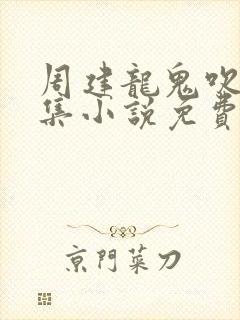 周建龍鬼吹
集小説免費
京門菜刀